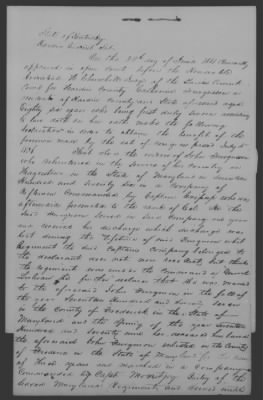 State of Kentucky
Hardin Circuit Sct.
On this day of June 1841 Personally
appeared in open court before the Honorable
Armistead H Churchill Judge of the Circuit
Court for Hardin County Catharine Dunguson a
resident of Hardin County and State aforesaid aged
Eighty six years who being first duly sworn according
to law doth on her oath make the following
declaration in order to obtain the benefit of the
provision made by the act of congress passed July 4
1836 That she is the widow of John Dunguson
who volunteered in the service of his Country in
in the State of Maryland in Seventeen
Hundred and Seventy Six in a Company of
Commanded by Captain who was
afterwards promoted to the rank of Col. that the
said Dunguson served in said Company one year
and received his discharge which discharge was
lost during the lifetime of said Dunguson what
Regiment the said Captains Company belonged to
the declarant does not now recollect, but thinks
the regiment was under the command of
she further declares that she was married
to the aforesaid John Dunguson in the fall of
the year Seventeen Hundred and Seventy
in the County of Frederick in the State of
Maryland and the Spring of the year Seventeen
Hundred and Seventy her husband
the aforesaid John Dunguson enlisted in the County
of Frederick in the State of Maryland for the term
of three years and marched in a Company
Commanded by Capt of the
Second Maryland Regiment, and served until